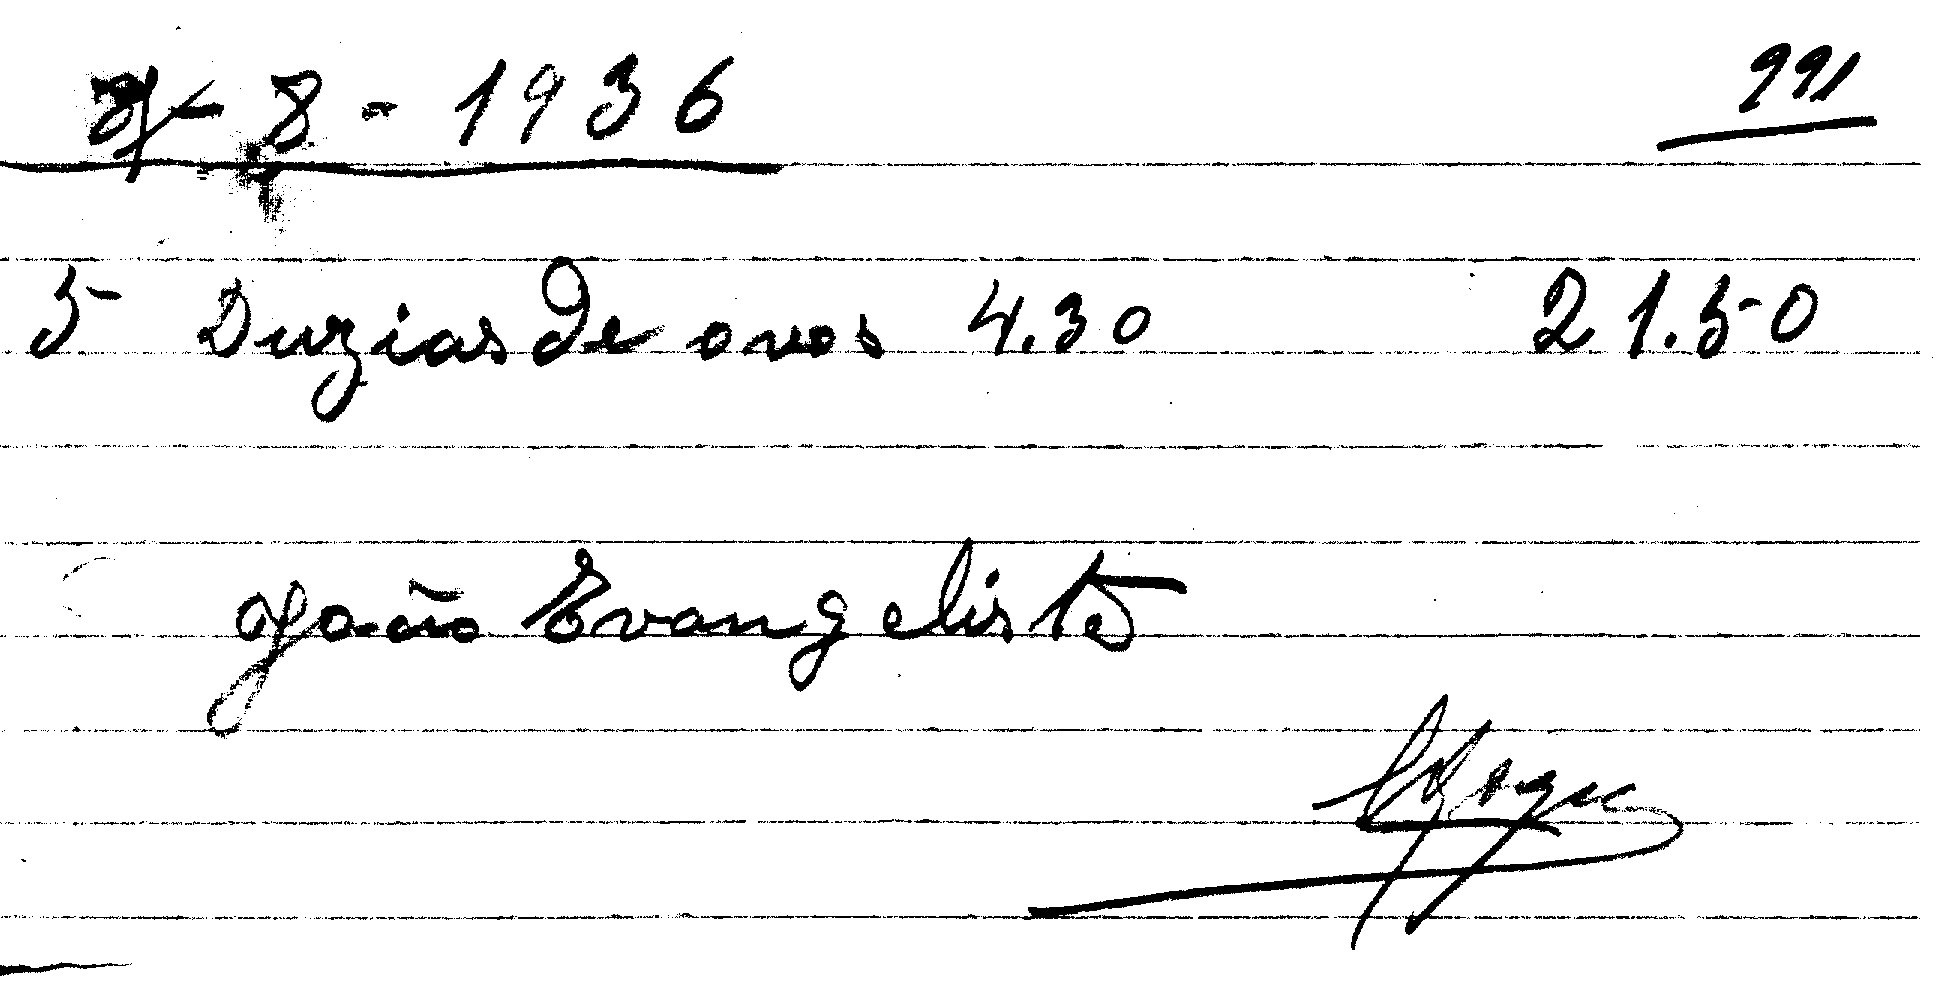 7-8-1936
5 Duzias de ovos 4.30 21.50
João Evangelista